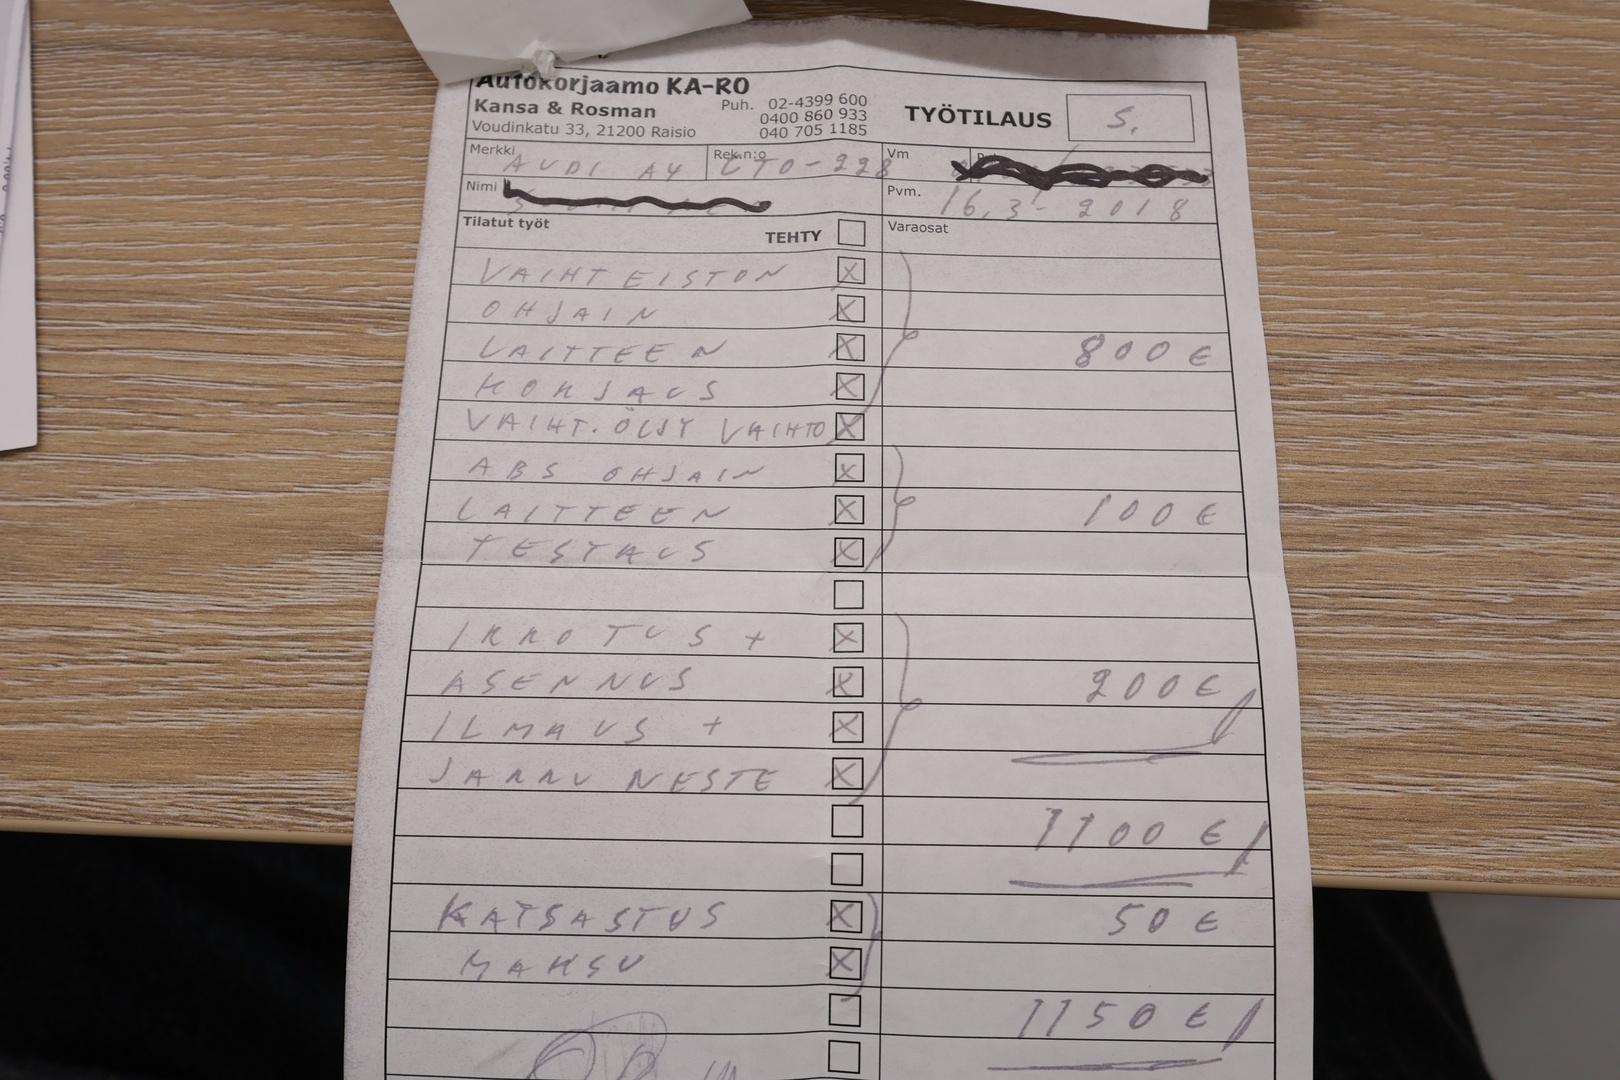 Autokorjaamo KA-RO
Kansa & Rosman
Voudinkatu 33, 21200 Raisio
Puh. 02-4399 600
0400 860 933
040 705 1185
TYÖTILAUS S.
Merkki AUDI A4 Rek.n:o CTO-228 Vm
Nimi Pvm. 16.3-2018
Tilatut työt TEHTY Varaosat
VAIHTEISTON
OHJAIN
LAITTEEN 800 €
KORJAUS
VAIHT. ÖLJY VAIHTO
ABS OHJAIN
LAITTEEN 100 €
TESTAUS
IRROTUS +
ASENNUS 200 €
ILMAUS +
JARRU NESTE
1100 €
KATSASTUS 50 €
MAKSU
1150 €